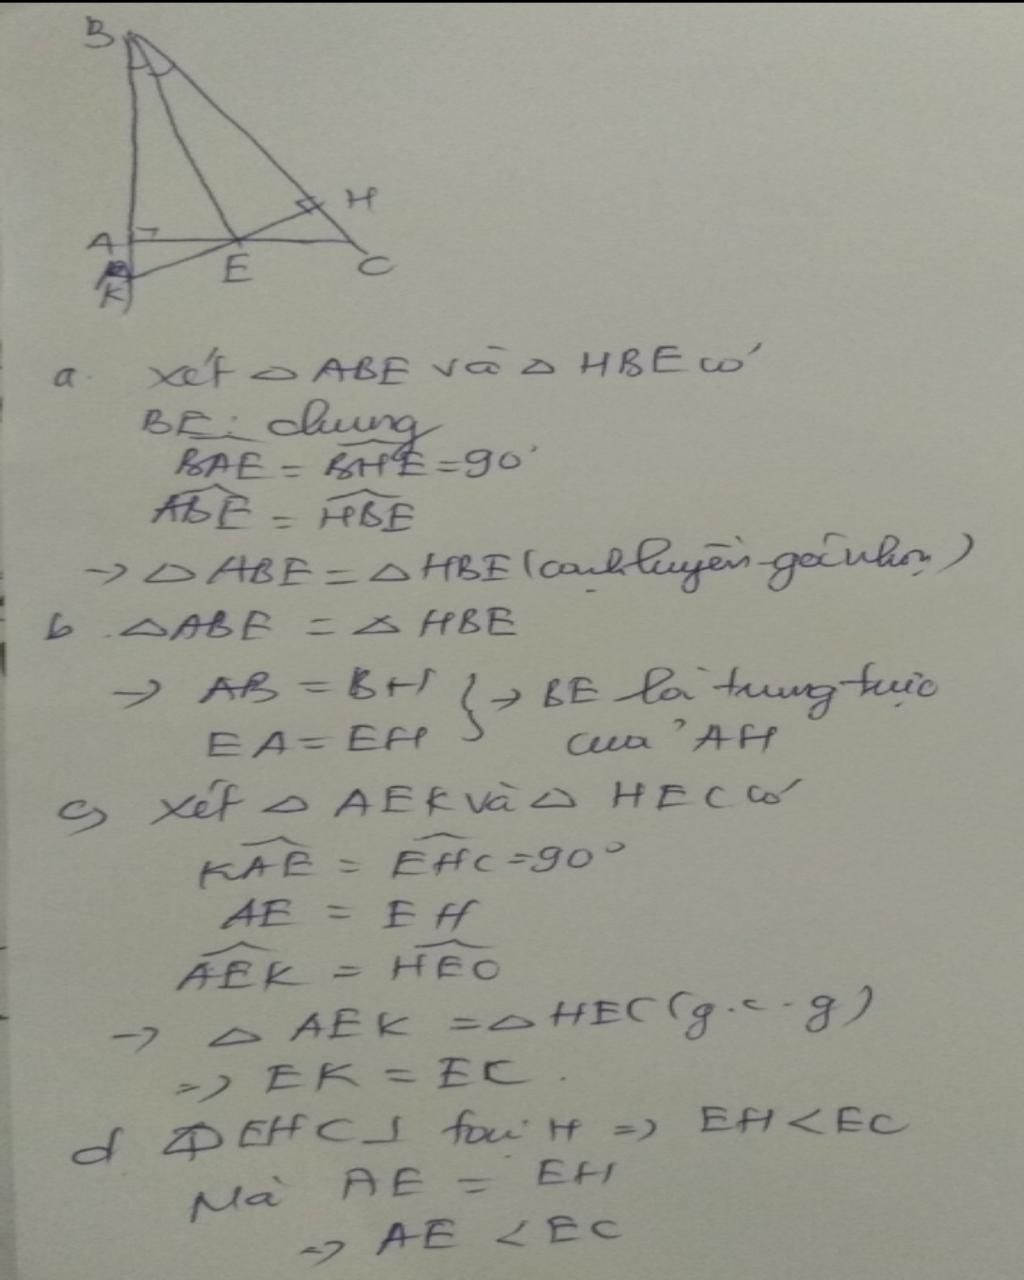 B
H
A
E
C
K
a. Xét △ ABE và △ HBE có
BE: chung
BAE = \widehat{BHE} = 90°
\widehat{ABE} = \widehat{HBE}
→ △ ABE = △ HBE (cạnh huyền - góc nhọn)
b. △ABE = △ HBE
→ AB = BH } → BE là trung trực
EA = EH của AH
c) Xét △ AEK và △ HEC có
\widehat{KAE} = \widehat{EHC} = 90°
AE = EH
\widehat{AEK} = \widehat{HEC}
→ △ AEK = △ HEC (g.c.g)
=> EK = EC.
d △ EHC ⊥ tại H => EH < EC
Mà AE = EH
=> AE < EC